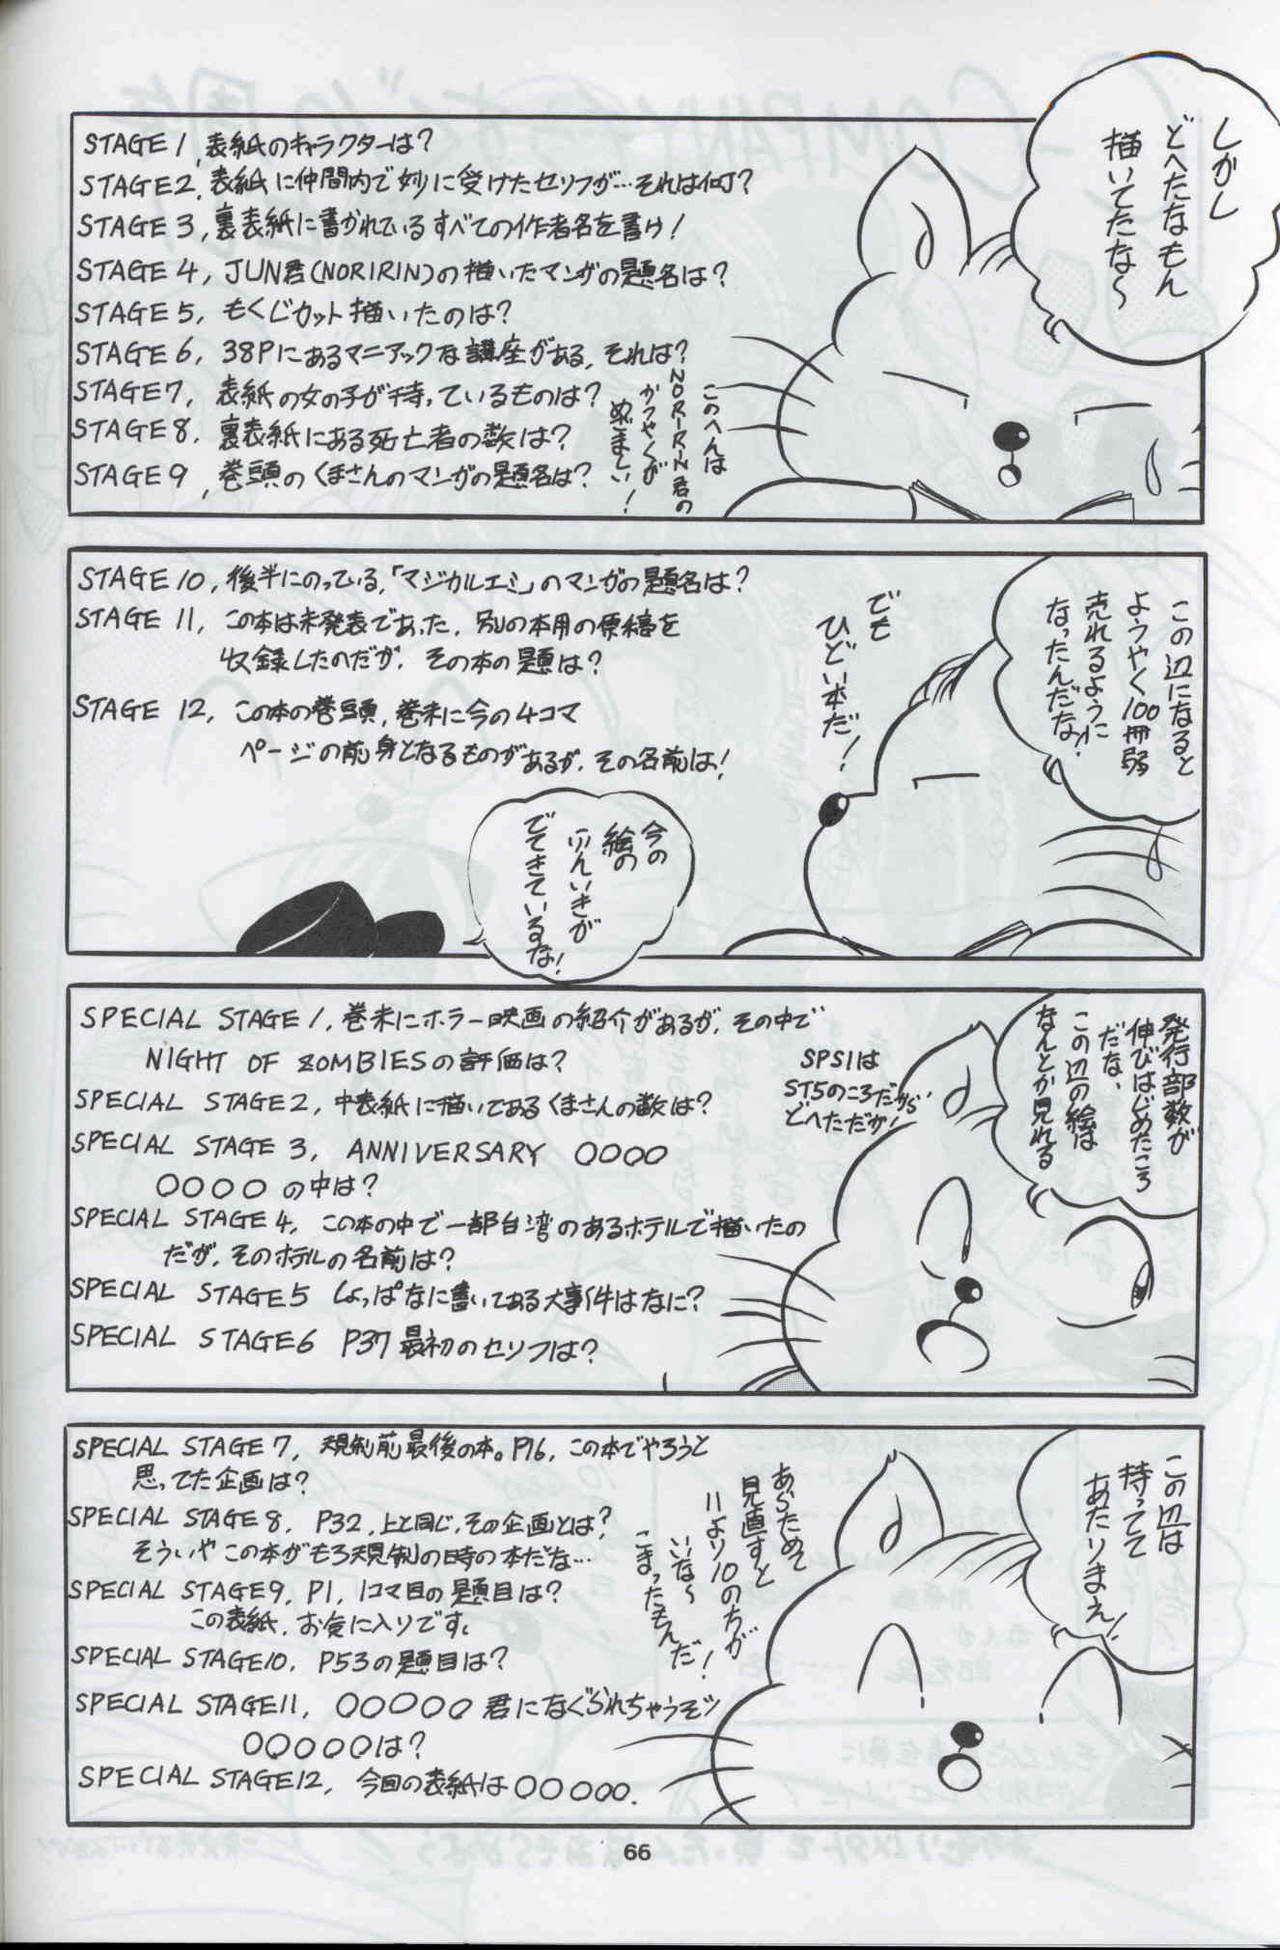 しかし
どへたなもん
描いてたな〜
STAGE 1, 表紙のキャラクターは?
STAGE 2, 表紙に仲間内で妙に受けたセリフが…それは何?
STAGE 3, 裏表紙に書かれているすべての作者名を書け!
STAGE 4, JUN君(NORIRIN)の描いたマンガの題名は?
STAGE 5, もくじカット描いたのは?
STAGE 6, 38Pにあるマニアックな講座がある, それは?
STAGE 7, 表紙の女の子が持っているものは?
STAGE 8, 裏表紙にある死亡者の数は?
STAGE 9, 巻頭のくまさんのマンガの題名は?
このへんは
NORIRIN君の
かつやくが
めざましい!
この辺になると
ようやく100冊弱
売れるように
なったんだな?
でも
ひどい本だ!
STAGE 10, 後半にのっている,「マジカルエミ」のマンガの題名は?
STAGE 11, この本は未発表であった, 別の本用の原稿を
収録したのだが, その本の題は?
STAGE 12, この本の巻頭, 巻末に今の4コマ
ページの前身となるものがあるが, その名前は!
今の
絵の
ふんいきが
でてきているな!
発行部数が
伸びはじめたころ
だな,
この辺の絵は
なんとか見れる
SPS1は
ST5のころだから
どへただが!
SPECIAL STAGE 1, 巻末にホラー映画の紹介があるが, その中で
NIGHT OF ZOMBIESの評価は?
SPECIAL STAGE 2, 中表紙に描いてあるくまさんの数は?
SPECIAL STAGE 3, ANNIVERSARY ○○○○
○○○○の中は?
SPECIAL STAGE 4, この本の中で一部台湾のあるホテルで描いたの
だが, そのホテルの名前は?
SPECIAL STAGE 5 しょっぱなに書いてある大事件はなに?
SPECIAL STAGE 6 P37最初のセリフは?
この辺は
持ってて
あたりまえ!
あらためて
見直すと
11より10のちが
いな〜
こまったもんだ!
SPECIAL STAGE 7, 規制前最後の本。P16, この本でやろうと
思ってた企画は?
SPECIAL STAGE 8, P32, 上と同じ, その企画とは?
そういやこの本がもろ規制の時の本だな…
SPECIAL STAGE 9, P1, 1コマ目の題目は?
この表紙, お気に入りです。
SPECIAL STAGE 10, P53の題目は?
SPECIAL STAGE 11, ○○○○○君になぐられちゃうぞッ
○○○○○は?
SPECIAL STAGE 12, 今回の表紙は○○○○○.
66